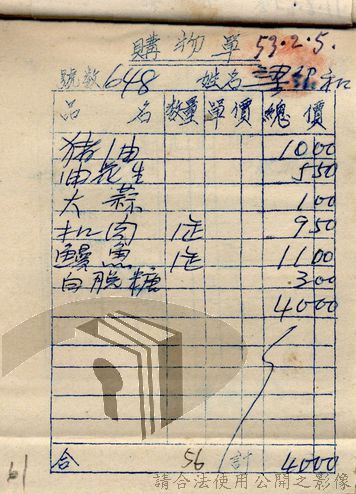 購物單 53.2.5.
號數 648 姓名
品名 數量 單價 總價
猪油 1000
油花生 550
大蒜 100
扣肉 1定 950
鰻魚 1定 1100
白脫糖 300
4000
合 56 計 4000
61
請合法使用公開之影像